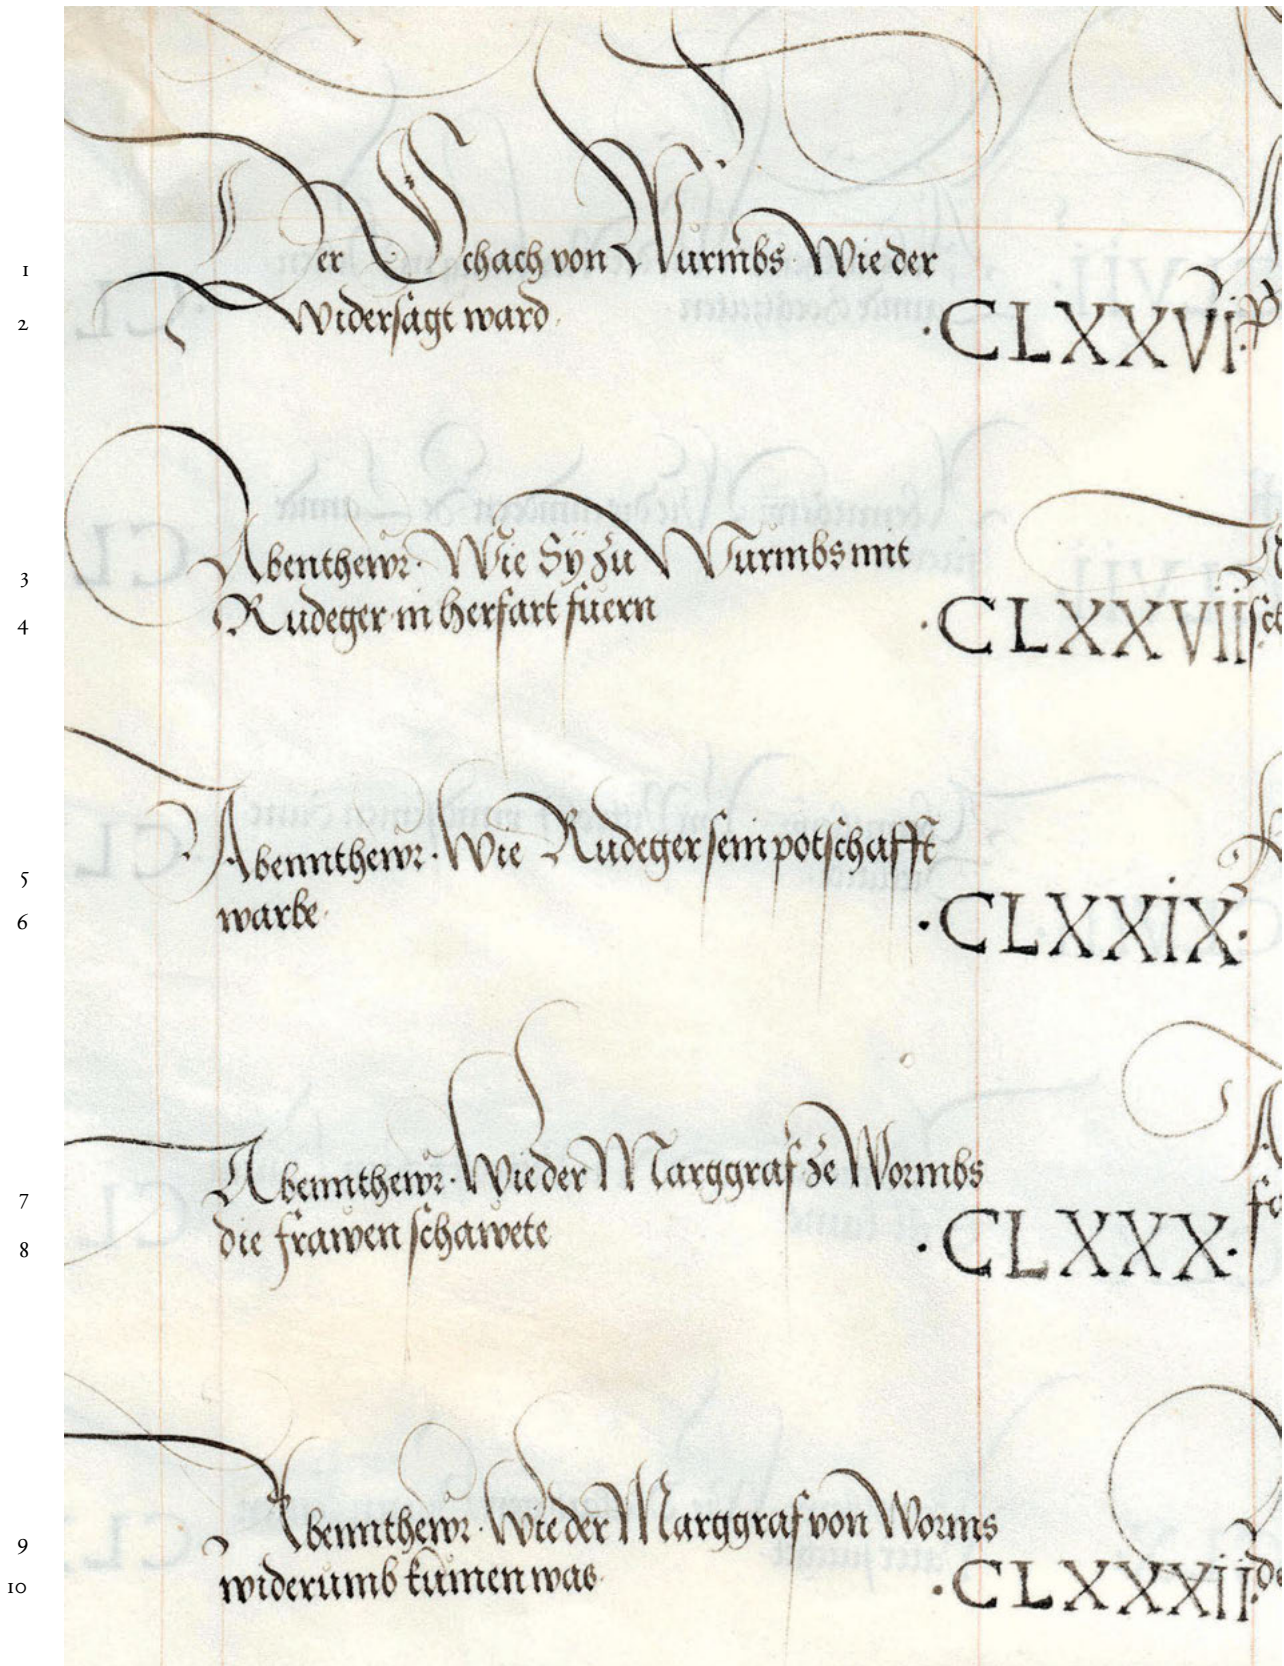 1 Der Schach von Wurmbs Wie der
2 Widersagt ward · ·CLXXVI·
3 Abenthewr· Wie Sy zu Wurmbs mit
4 Rudeger in herfart fuern ·CLXXVII
5 Abennthewr· Wie Rudeger sein potschafft
6 warbe· ·CLXXIX·
7 Abennthewr· Wie der Marggraf ze Wormbs
8 die frawen schawete ·CLXXX·
9 Abennthewr· Wie der Marggraf von Worms
10 widerumb kumen was· ·CLXXXII·